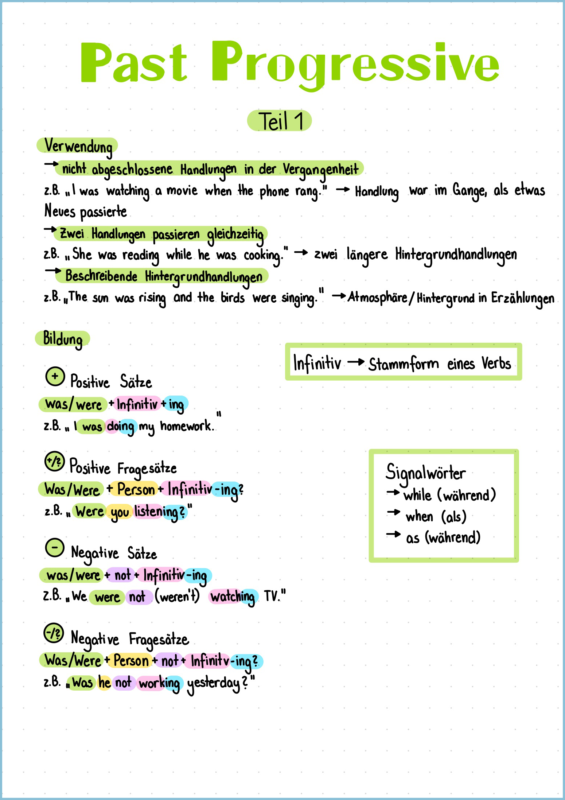 Past Progressive
Teil 1
Verwendung
→ nicht abgeschlossene Handlungen in der Vergangenheit
z.B. „I was watching a movie when the phone rang." → Handlung war im Gange, als etwas
Neues passierte
→ Zwei Handlungen passieren gleichzeitig
z.B. „She was reading while he was cooking." → zwei längere Hintergrundhandlungen
→ Beschreibende Hintergrundhandlungen
z.B. „The sun was rising and the birds were singing." → Atmosphäre/Hintergrund in Erzählungen
Bildung
Infinitiv → Stammform eines Verbs
+ Positive Sätze
was/were + Infinitiv + ing
z.B. „I was doing my homework."
+/? Positive Fragesätze
Was/Were + Person + Infinitiv-ing?
z.B. „Were you listening?"
Signalwörter
→ while (während)
→ when (als)
→ as (während)
- Negative Sätze
was/were + not + Infinitiv-ing
z.B. „We were not (weren't) watching TV."
-/? Negative Fragesätze
Was/Were + Person + not + Infinitv-ing?
z.B. „Was he not working yesterday?"